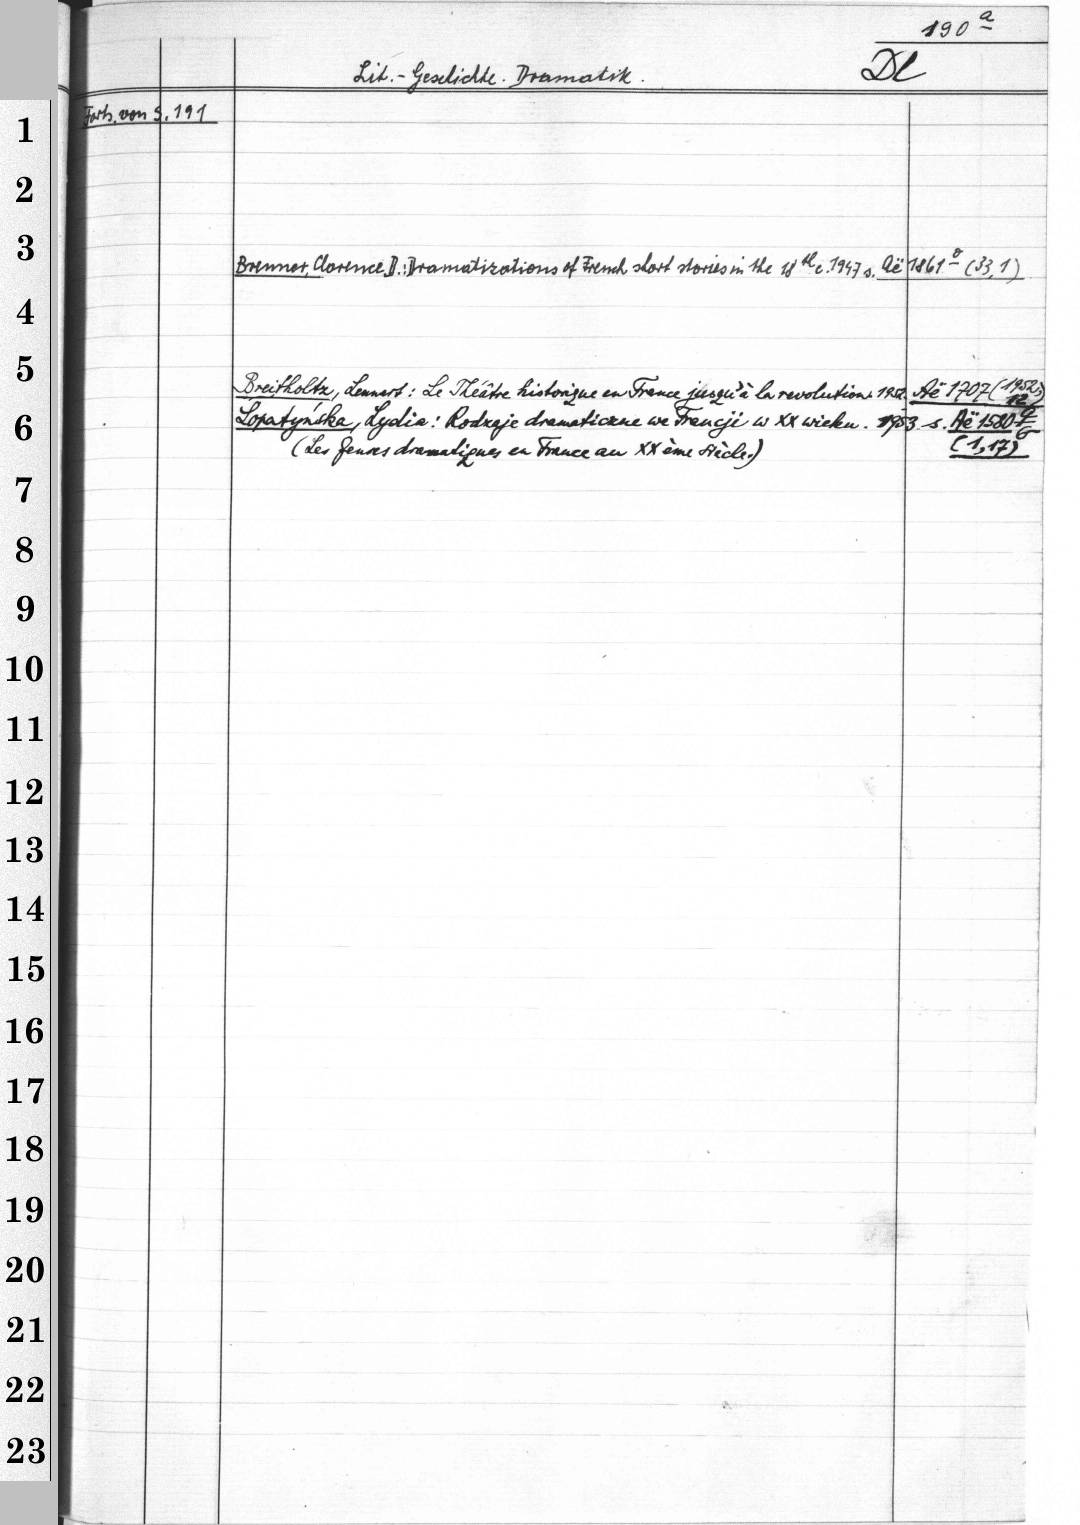 190 a
Lit.-Geschichte. Dramatik. Dl
Forts. von S. 191
1
2
3
Brenner, Clarence D.: Dramatizations of French short stories in the 18 th c. 1947 s. Aë 1861 (33,1)
4
5
Breitholtz, Lennart: Le Théâtre historique en France jusqu'à la revolution 1952. Aë 1707 (1952, 12)
6
Łopatyńska, Lydia: Rodzaje dramatyczne we Francji w XX wieku. 1953 s. Aë 1580
(Les genres dramatiques en France au XXème siècle.) (1,17)
7
8
9
10
11
12
13
14
15
16
17
18
19
20
21
22
23